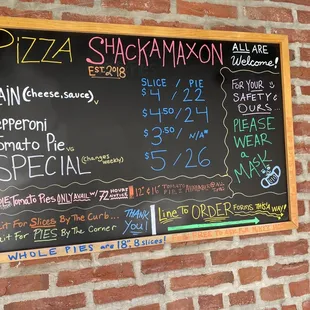 PIZZA SHACKAMAXON
EST. 2018
ALL ARE
Welcome!
SLICE / PIE
AIN (cheese, sauce) V $4 / 22
epperoni $4.50 / 24
omato Pie VG $3.50 / N/A*
SPECIAL (changes weekly) $5 / 26
FOR YOUR
SAFETY &
OURS...
PLEASE
WEAR
a
MASK
Tomato Pies ONLY AVAIL w/ 72 HOURS NOTICE
it For Slices By The Curb...
it For PIES By The Corner
THANK
YOU!
Line To ORDER forms THIS WAY!
WHOLE PIES are 18", 8 slices!